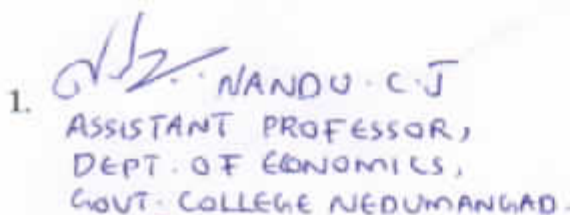 1. NANDU. C. J
ASSISTANT PROFESSOR,
DEPT. OF ECONOMICS,
GOVT. COLLEGE NEDUMANGAD.